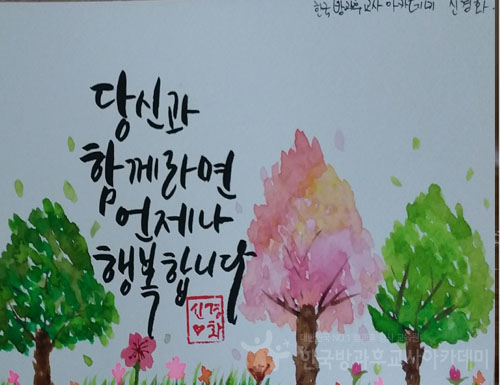 한국방과후교사아카데미 신경화
당신과
함께라면
언제나
행복합니다
신경
♥화
한국방과후교사아카데미